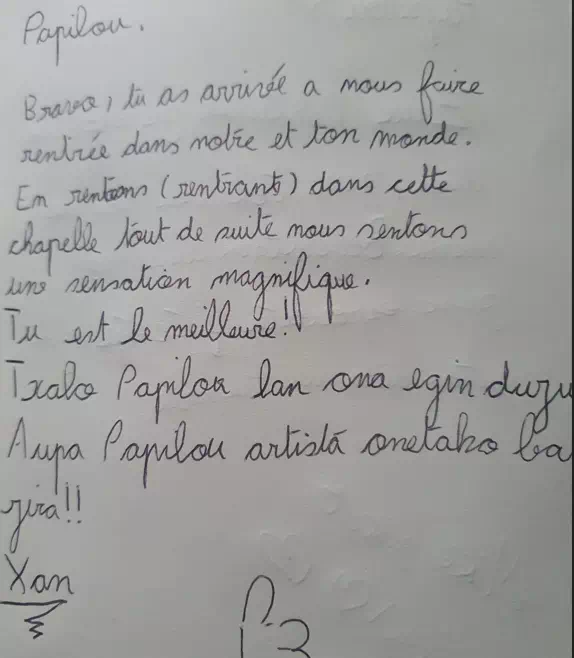 Papilou.
Bravo, tu as arrivée a nous faire
rentrée dans notre et ton monde.
En rentrons (rentrants) dans cette
chapelle tout de suite nous sentons
une sensation magnifique.
Tu est le meilleure!!
Txalo Papilou lan ona egin duzu
Aupa Papilou artista onetako ba
zira!!
Xan